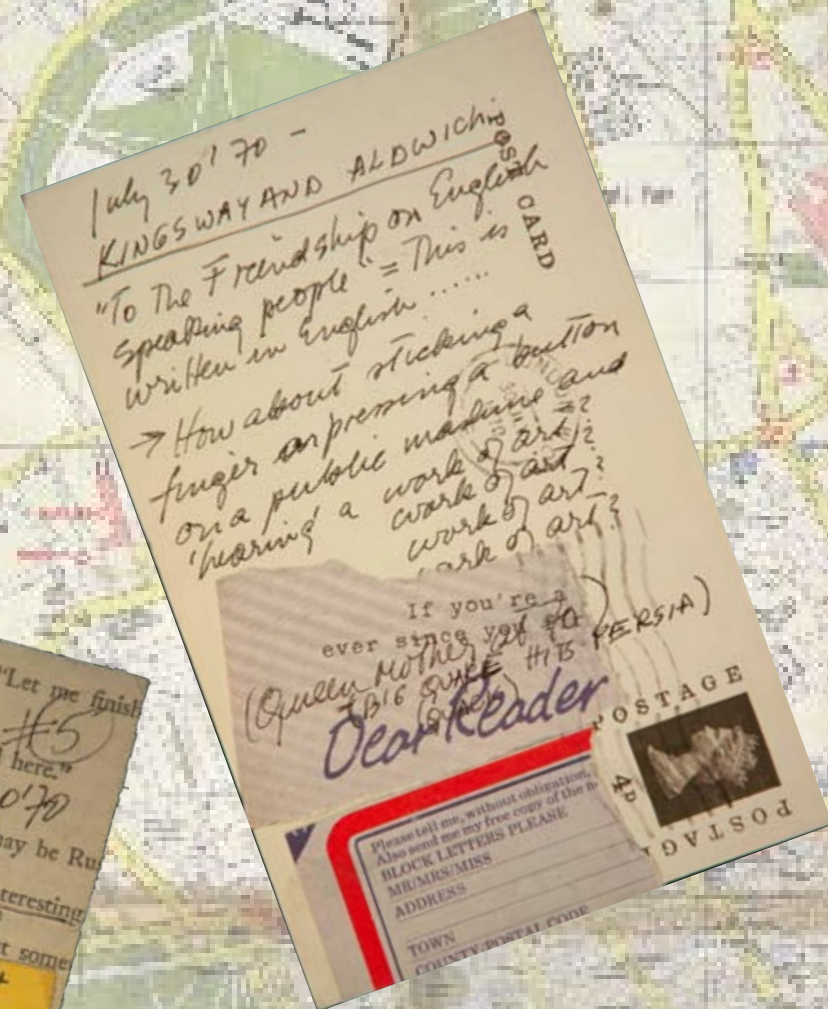 July 30' 70 -
KINGSWAY AND ALDWICH
POST CARD
"To The Friendship on English
speaking people" = This is
written in English ......
→ How about sticking a
finger or pressing a button
on a public machine and
'hearing' a work of art?
work of art?
work of art?
work of art?
If you're a
ever since
(Queen Mother
BIG QUAKE HITS PERSIA)
Dear Reader
POSTAGE
4D
POSTAGE
Please tell me, without obligation,
Also send me my free copy of the
BLOCK LETTERS PLEASE
MR/MRS/MISS
ADDRESS
TOWN
COUNTY/POSTAL CODE
"Let me finish
#5
here."
0'70
may be Ru
teresting
t some